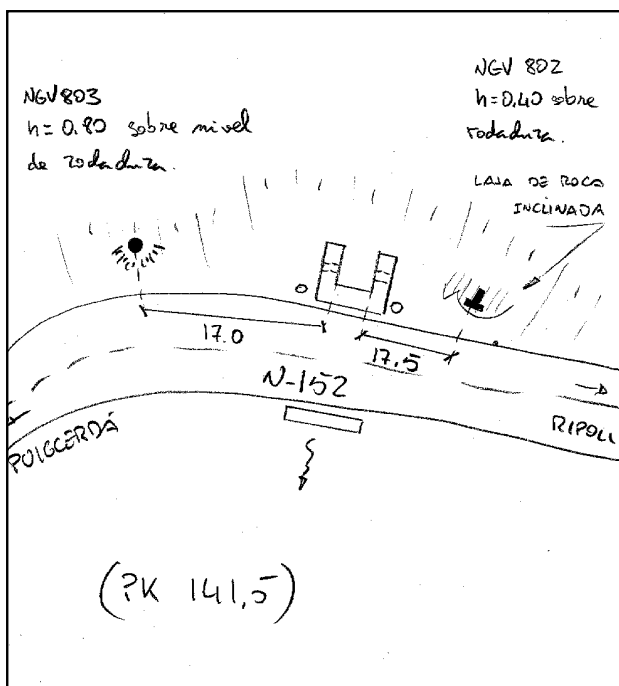 NGV803
h=0.80 sobre nivel
de rodadura.
NGV 802
h=0.40 sobre
rodadura.
LAJA DE ROCA
INCLINADA
17.0
17.5
N-152
PUIGCERDÁ
RIPOLL
(PK 141,5)